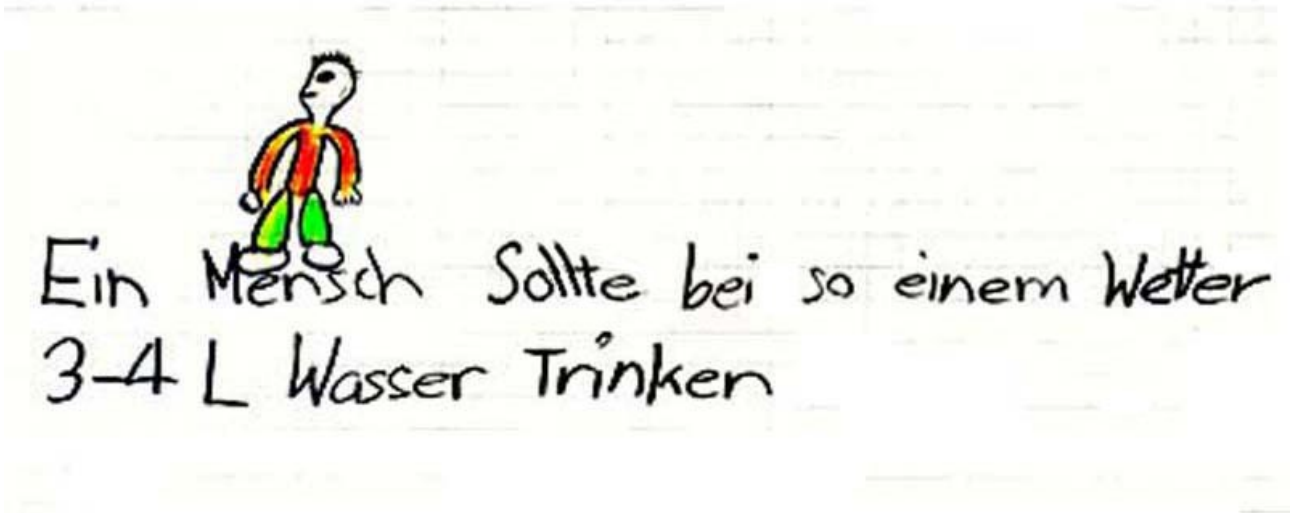 Ein Mensch Sollte bei so einem Wetter
3-4 L Wasser Trinken